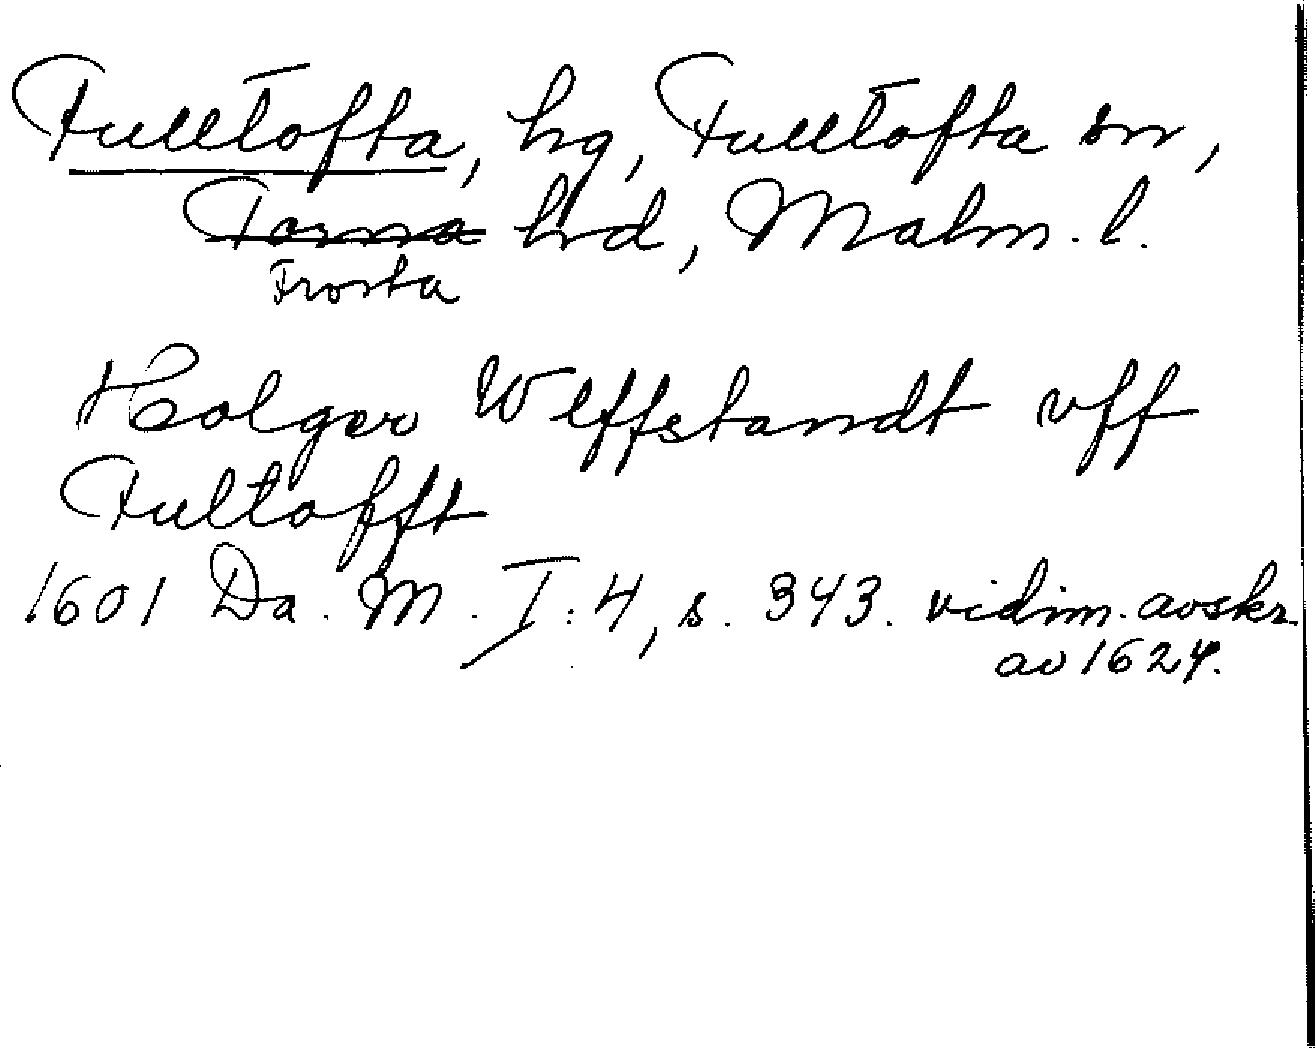 Fulltofta, hg, Fulltofta sn,
Torna hrd, Malm. l.
Frosta
Holger Wlffstandt vff
Fultofft
1601 Da. M. I: 4, s. 343. vidim. avskr.
av 1624.